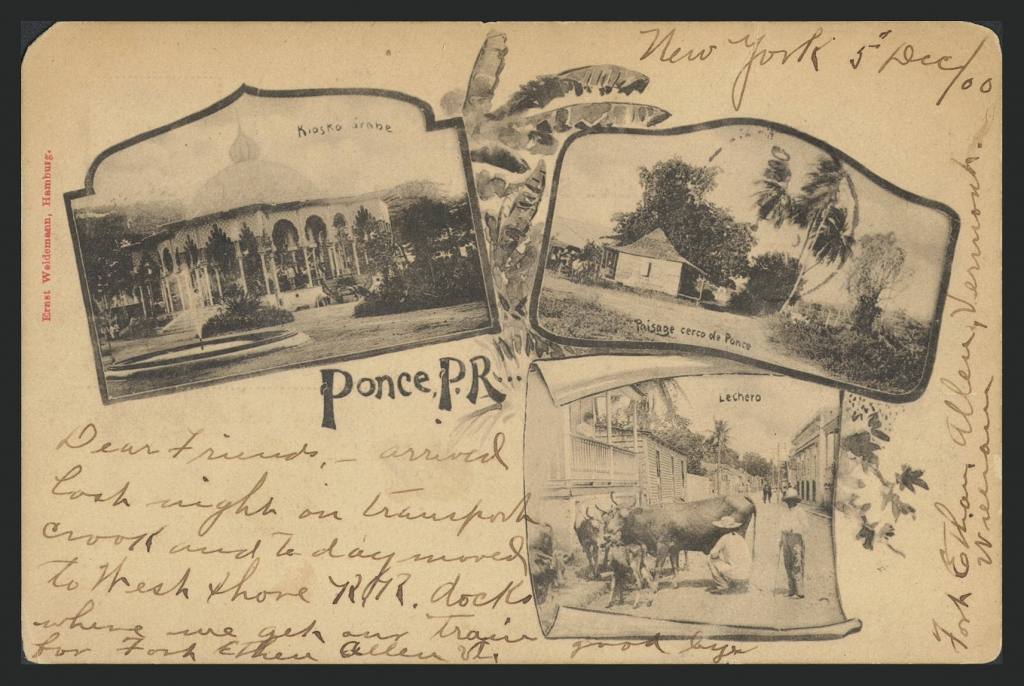 New York 5" Dec/00
Kiosko árabe
Ernst Waldemann, Hamburg.
Paisage cerco de Ponce
Ponce, P.R...
Lechero
Dear Friends, - arrived
last night on transport
Crook and to day moved
to West Shore R.R. docks
where we get our train
for Fort Ethen Allen Vt. good bye
Fort Ethan Allen, Vermont -